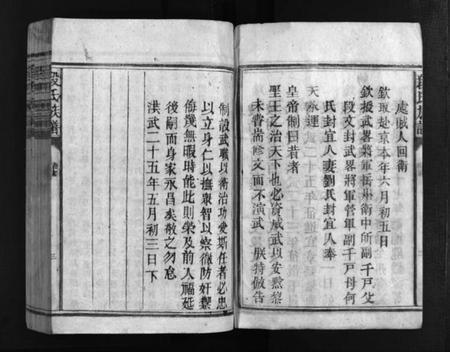 處賊人回衛
欽取赴京本年六月初五日
欽授武畧將軍岳州衛中所副千戶父
段文封武畧將軍管軍副千戶母何
氏封宜人妻劉氏封宜人奉
天承運
皇帝制曰昔者
聖王之治天下也必資威武以安黔黎
未嘗專修文而不演武 朕特倣古
制設武職以衛治功受斯任者必忠
以立身仁以撫眾智以察微防奸禦
侮機無暇時能此則榮及前人福延
後嗣而身家永昌矣敬之勿怠
洪武二十五年五月初三日下
段氏族譜